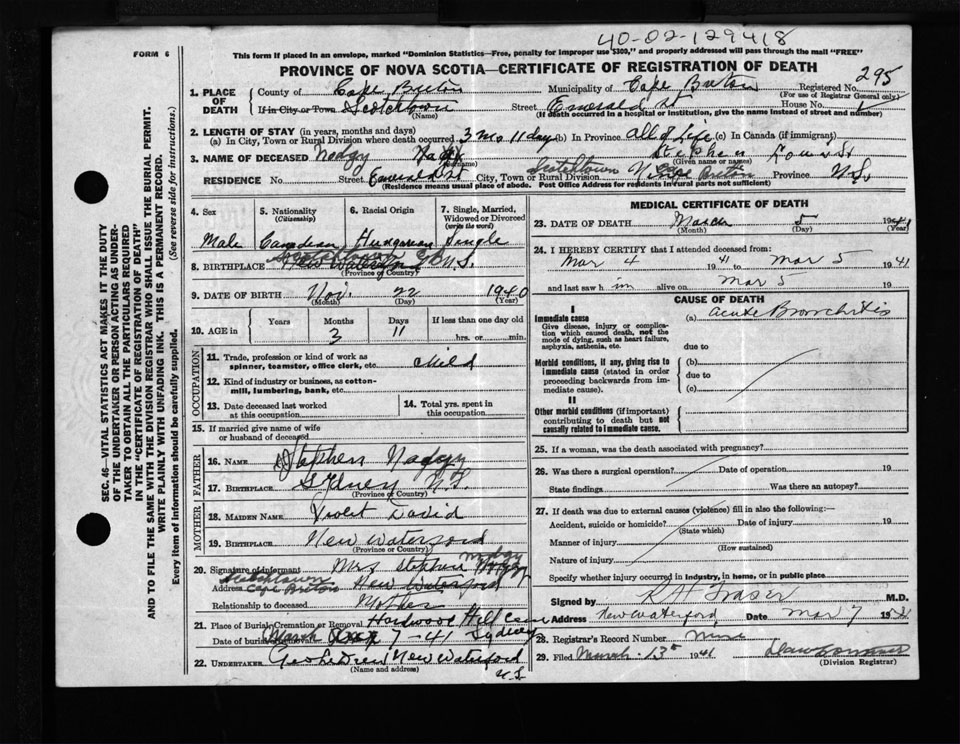 40-02-129418
FORM 6
This form if placed in an envelope, marked "Dominion Statistics—Free, penalty for improper use $300," and properly addressed will pass through the mail "FREE"
PROVINCE OF NOVA SCOTIA—CERTIFICATE OF REGISTRATION OF DEATH
295
1. PLACE OF DEATH
County of Cape Breton Municipality of Cape Breton Registered No.
(For use of Registrar General only)
If in City or Town Scotchtown Street Emerald St House No. 1
(Name) (If death occurred in a hospital or institution, give the name instead of street and number)
2. LENGTH OF STAY (in years, months and days)
(a) In City, Town or Rural Division where death occurred 3 mo 11 day (b) In Province All of Life (c) In Canada (if immigrant)
3. NAME OF DECEASED Nodgy Stephen Louis
(Given name or names)
RESIDENCE No. Street Emerald St City, Town or Rural Division Scotchtown Cape Breton Province N.S.
(Residence means usual place of abode. Post Office Address for residents in rural parts not sufficient)
4. Sex 5. Nationality (Citizenship) 6. Racial Origin 7. Single, Married, Widowed or Divorced (write the word)
Male Canadian Hungarian Single
8. BIRTHPLACE New Waterford N.S.
(Province or Country)
9. DATE OF BIRTH Nov. 22 1940
(Month) (Day) (Year)
10. AGE in Years Months Days If less than one day old
3 11 hrs. or min.
OCCUPATION
11. Trade, profession or kind of work as spinner, teamster, office clerk, etc. child
12. Kind of industry or business, as cotton-mill, lumbering, bank, etc.
13. Date deceased last worked at this occupation
14. Total yrs. spent in this occupation
15. If married give name of wife or husband of deceased
FATHER
16. NAME Stephen Nodgy
17. BIRTHPLACE Sydney N.S.
(Province or Country)
MOTHER
18. MAIDEN NAME Violet David
19. BIRTHPLACE New Waterford
(Province or Country)
20. Signature of informant Mrs Stephen Nodgy
Address Scotchtown Cape Breton New Waterford
Relationship to deceased Mother
21. Place of Burial, Cremation or Removal Hardwood Hill Cem Sydney
Date of burial March 7-41
22. UNDERTAKER New Waterford
(Name and address) N.S.
MEDICAL CERTIFICATE OF DEATH
23. DATE OF DEATH March 5 1941
(Month) (Day) (Year)
24. I HEREBY CERTIFY that I attended deceased from:
Mar 4 1941 to Mar 5 1941
and last saw him alive on Mar 5 19
CAUSE OF DEATH
I
Immediate cause (a) Acute Bronchitis
Give disease, injury or complication which caused death, not the mode of dying, such as heart failure, asphyxia, asthenia, etc.
due to
Morbid conditions, if any, giving rise to immediate cause (stated in order proceeding backwards from immediate cause).
(b)
due to
(c)
II
Other morbid conditions (if important) contributing to death but not causally related to immediate cause.
25. If a woman, was the death associated with pregnancy?
26. Was there a surgical operation? Date of operation 19
State findings Was there an autopsy?
27. If death was due to external causes (violence) fill in also the following:—
Accident, suicide or homicide? Date of injury 19
(State which)
Manner of injury
(How sustained)
Nature of injury
Specify whether injury occurred in industry, in home, or in public place
Signed by R H Fraser M.D.
Address New Waterford Date Mar 7 1941
28. Registrar's Record Number nine
29. Filed March-13th 1941
(Division Registrar)
SEC. 46—VITAL STATISTICS ACT MAKES IT THE DUTY
OF THE UNDERTAKER OR PERSON ACTING AS UNDER-
TAKER TO OBTAIN ALL THE PARTICULARS REQUIRED
IN THE "CERTIFICATE OF REGISTRATION OF DEATH"
AND TO FILE THE SAME WITH THE DIVISION REGISTRAR WHO SHALL ISSUE THE BURIAL PERMIT.
WRITE PLAINLY WITH UNFADING INK. THIS IS A PERMANENT RECORD.
Every item of Information should be carefully supplied. (See reverse side for instructions.)